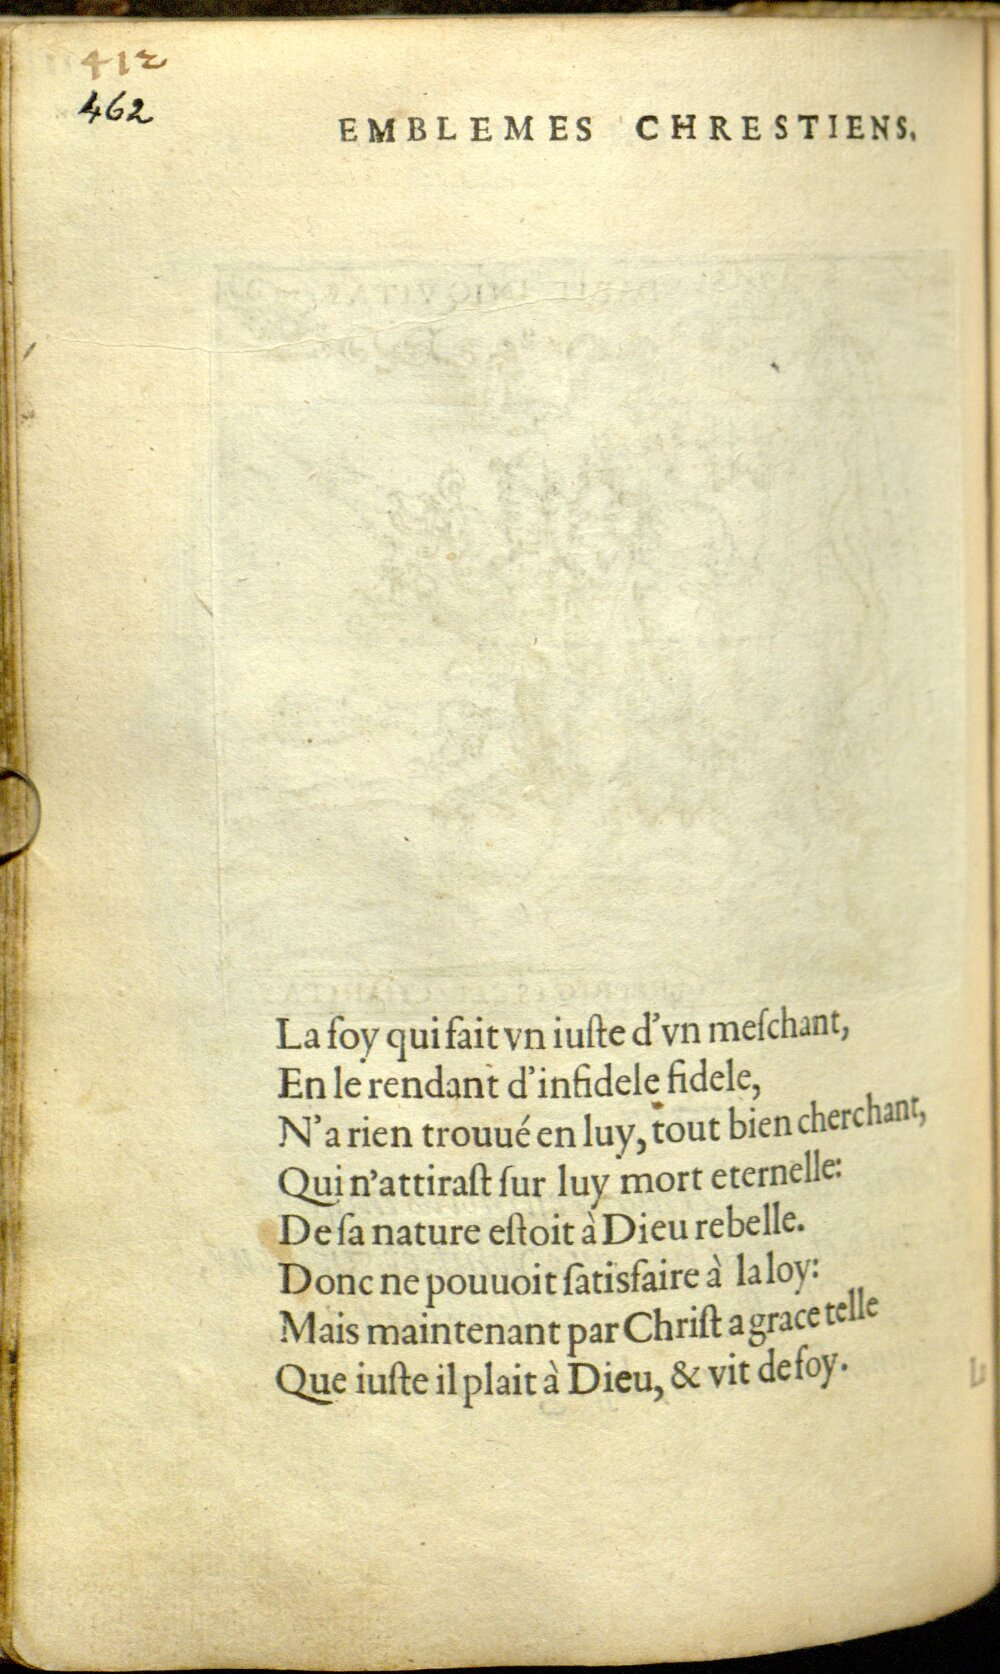 412
462
EMBLEMES CHRESTIENS.
La foy qui fait vn iuſte d'vn meſchant,
En le rendant d'infidele fidele,
N'a rien trouué en luy, tout bien cherchant,
Qui n'attiraſt ſur luy mort eternelle:
De ſa nature eſtoit à Dieu rebelle.
Donc ne pouuoit ſatisfaire à la loy:
Mais maintenant par Chriſt a grace telle
Que iuſte il plait à Dieu, & vit de foy.